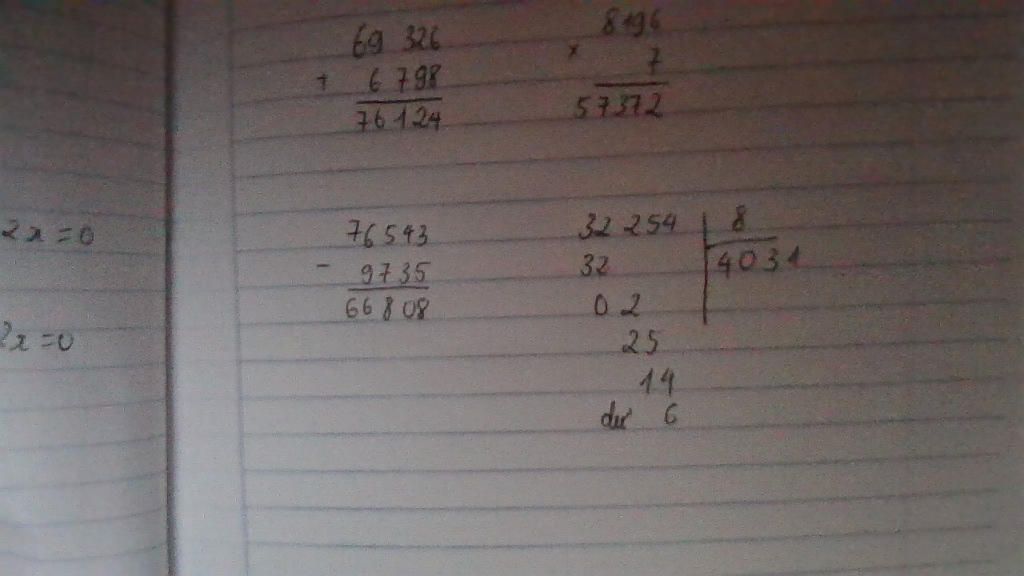 69 326
+ 6 798
76 124
8196
× 7
57372
2x = 0
2x = 0
76543
- 9735
66808
32 254 8
32 4031
0 2
25
14
dư 6